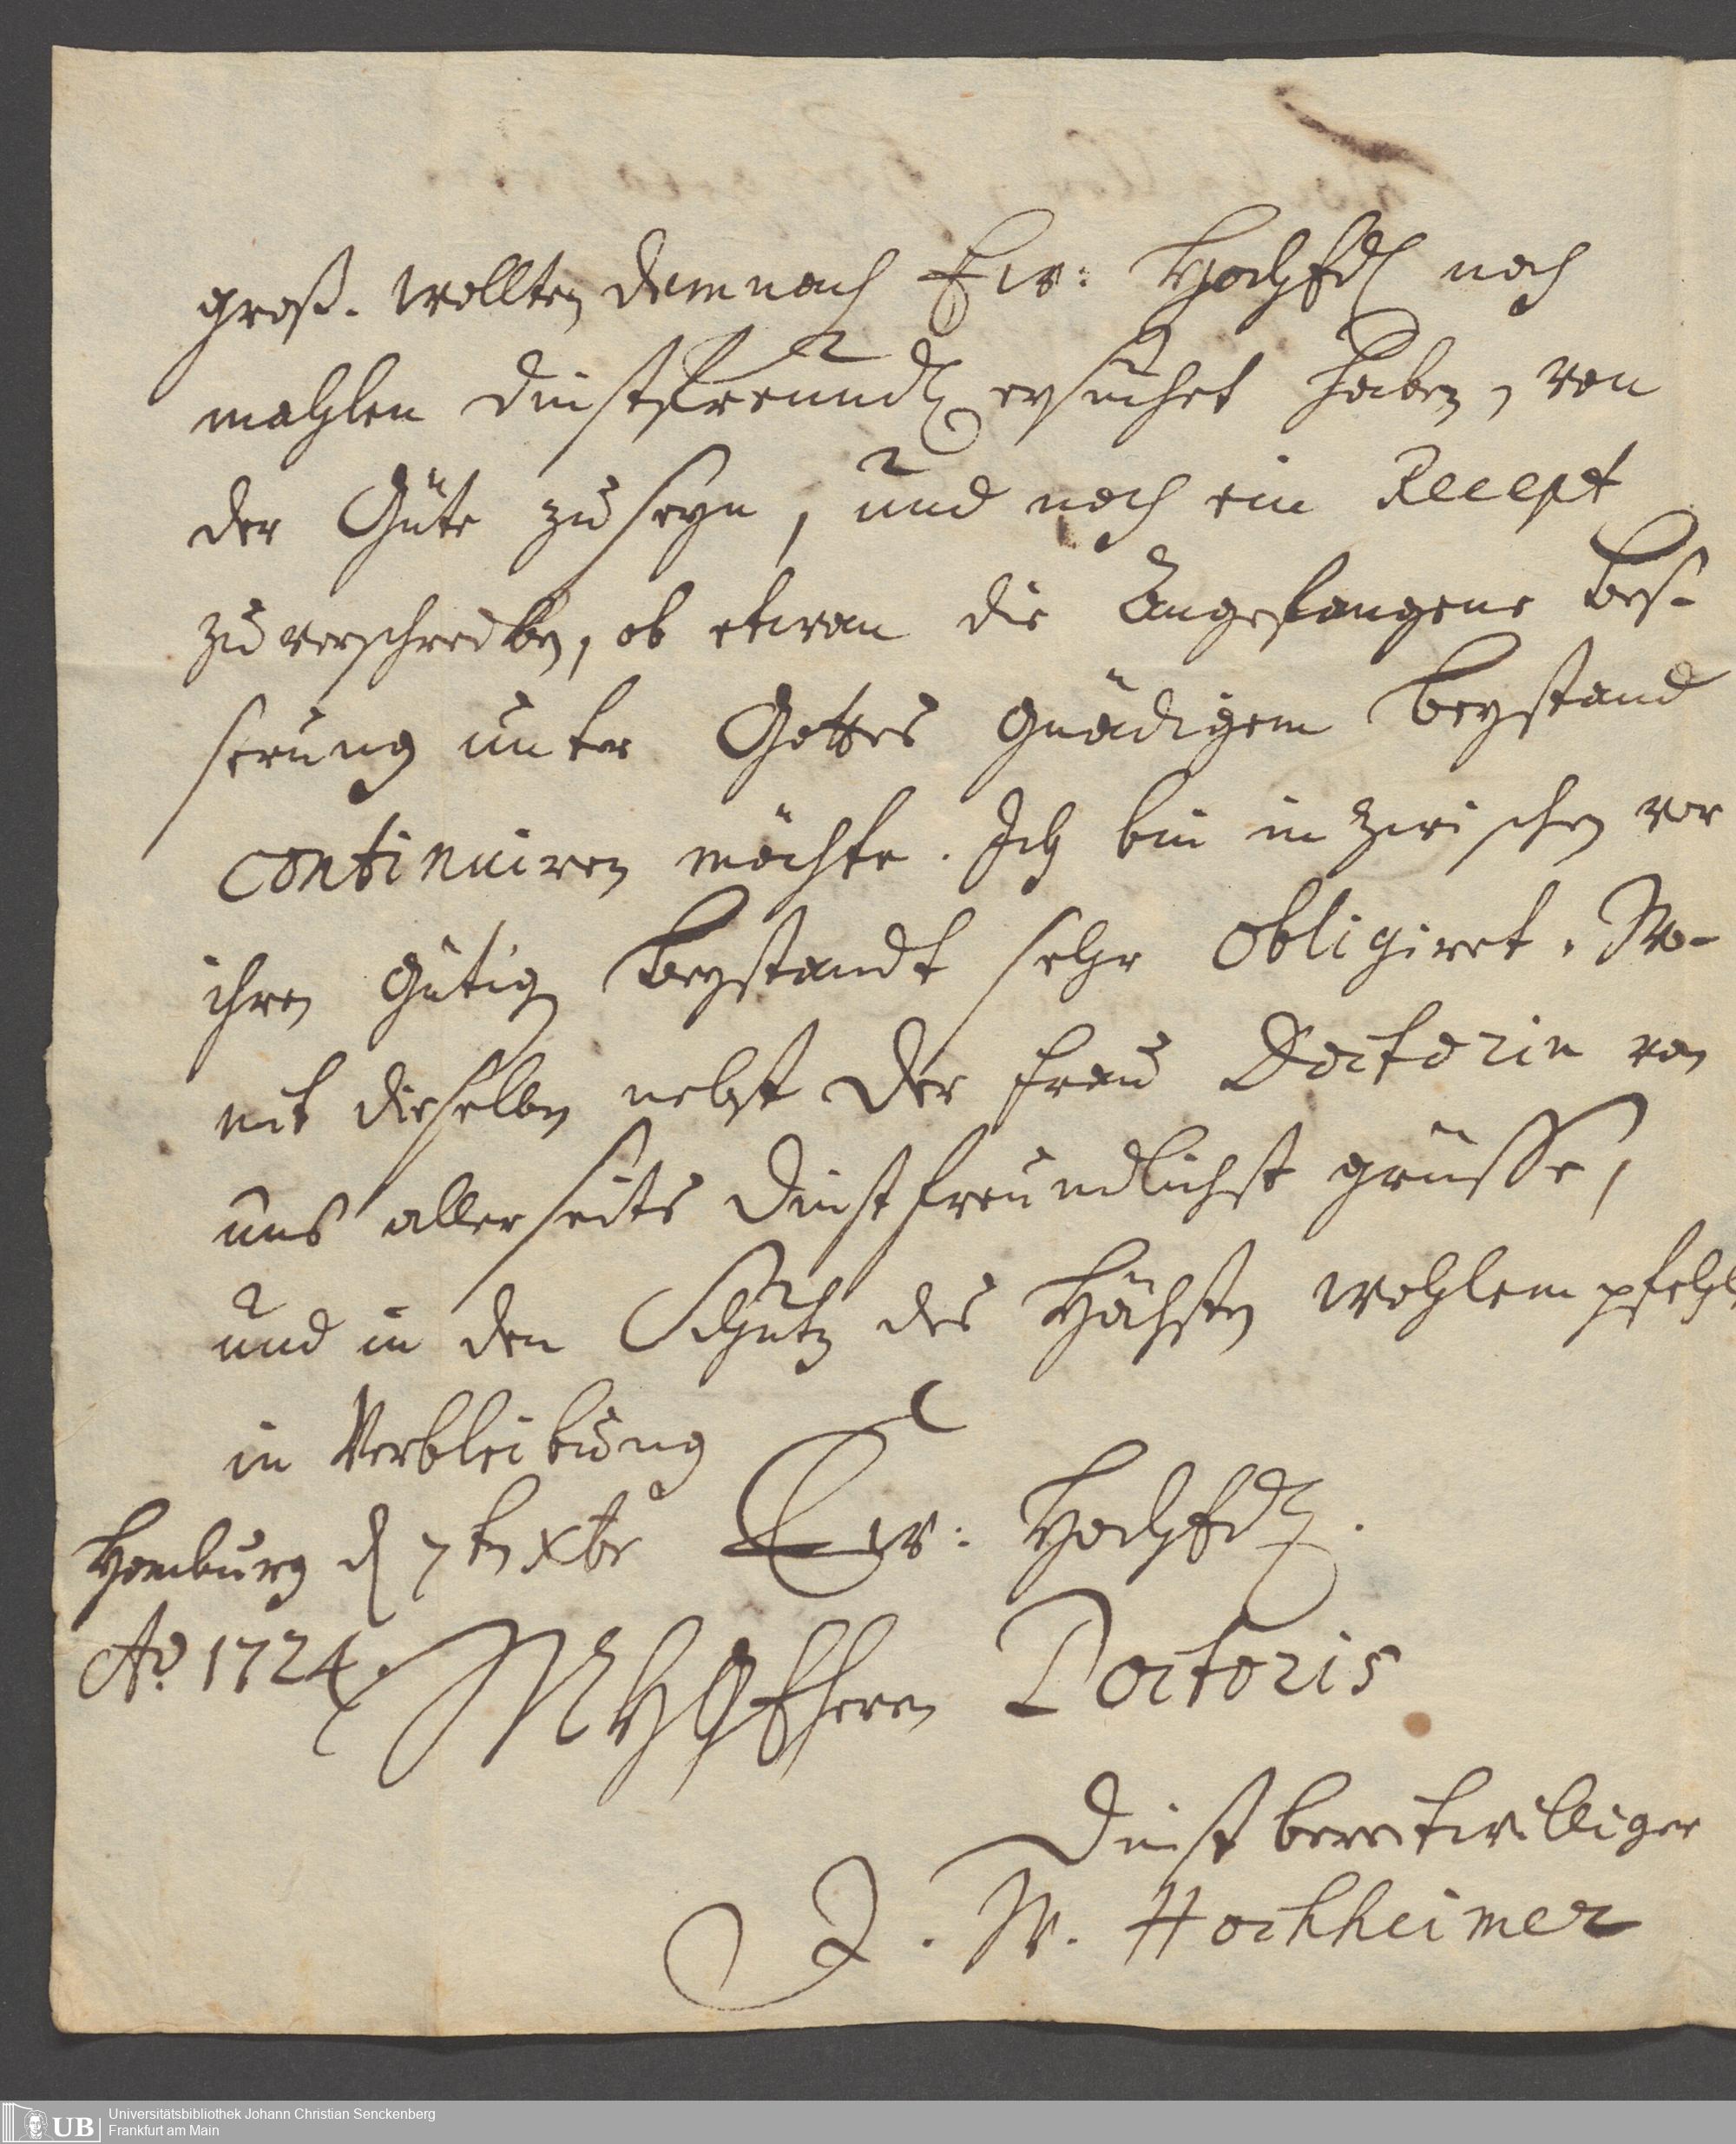 groß. wollten demnach Ew: Hochfdl noch
mahlen dinstfreundl ersuchet haben, von
der Güte zu seyn, und noch ein Recept
zu verschreiben, ob etwan die Angefangene Bes-
serung unter Gottes gnädigem Beystand
continuiren möchte. Ich bin in zwischen vor
ihren gütig Beystandt sehr obligiret. Wo-
mit dieselben nebst der Frau Doctorin von
uns allerseits dinstfreundlichst grüsse,
und in den Schutz des Höchsten wohl empfehl
in Verbleibung
Homburg d 7ten Xbr Ew: Hochfdl.
Ao 1724. Herrn Doctoris
Dinst bereitwilliger
J. W. Hochheimer
UB Universitätsbibliothek Johann Christian Senckenberg
Frankfurt am Main